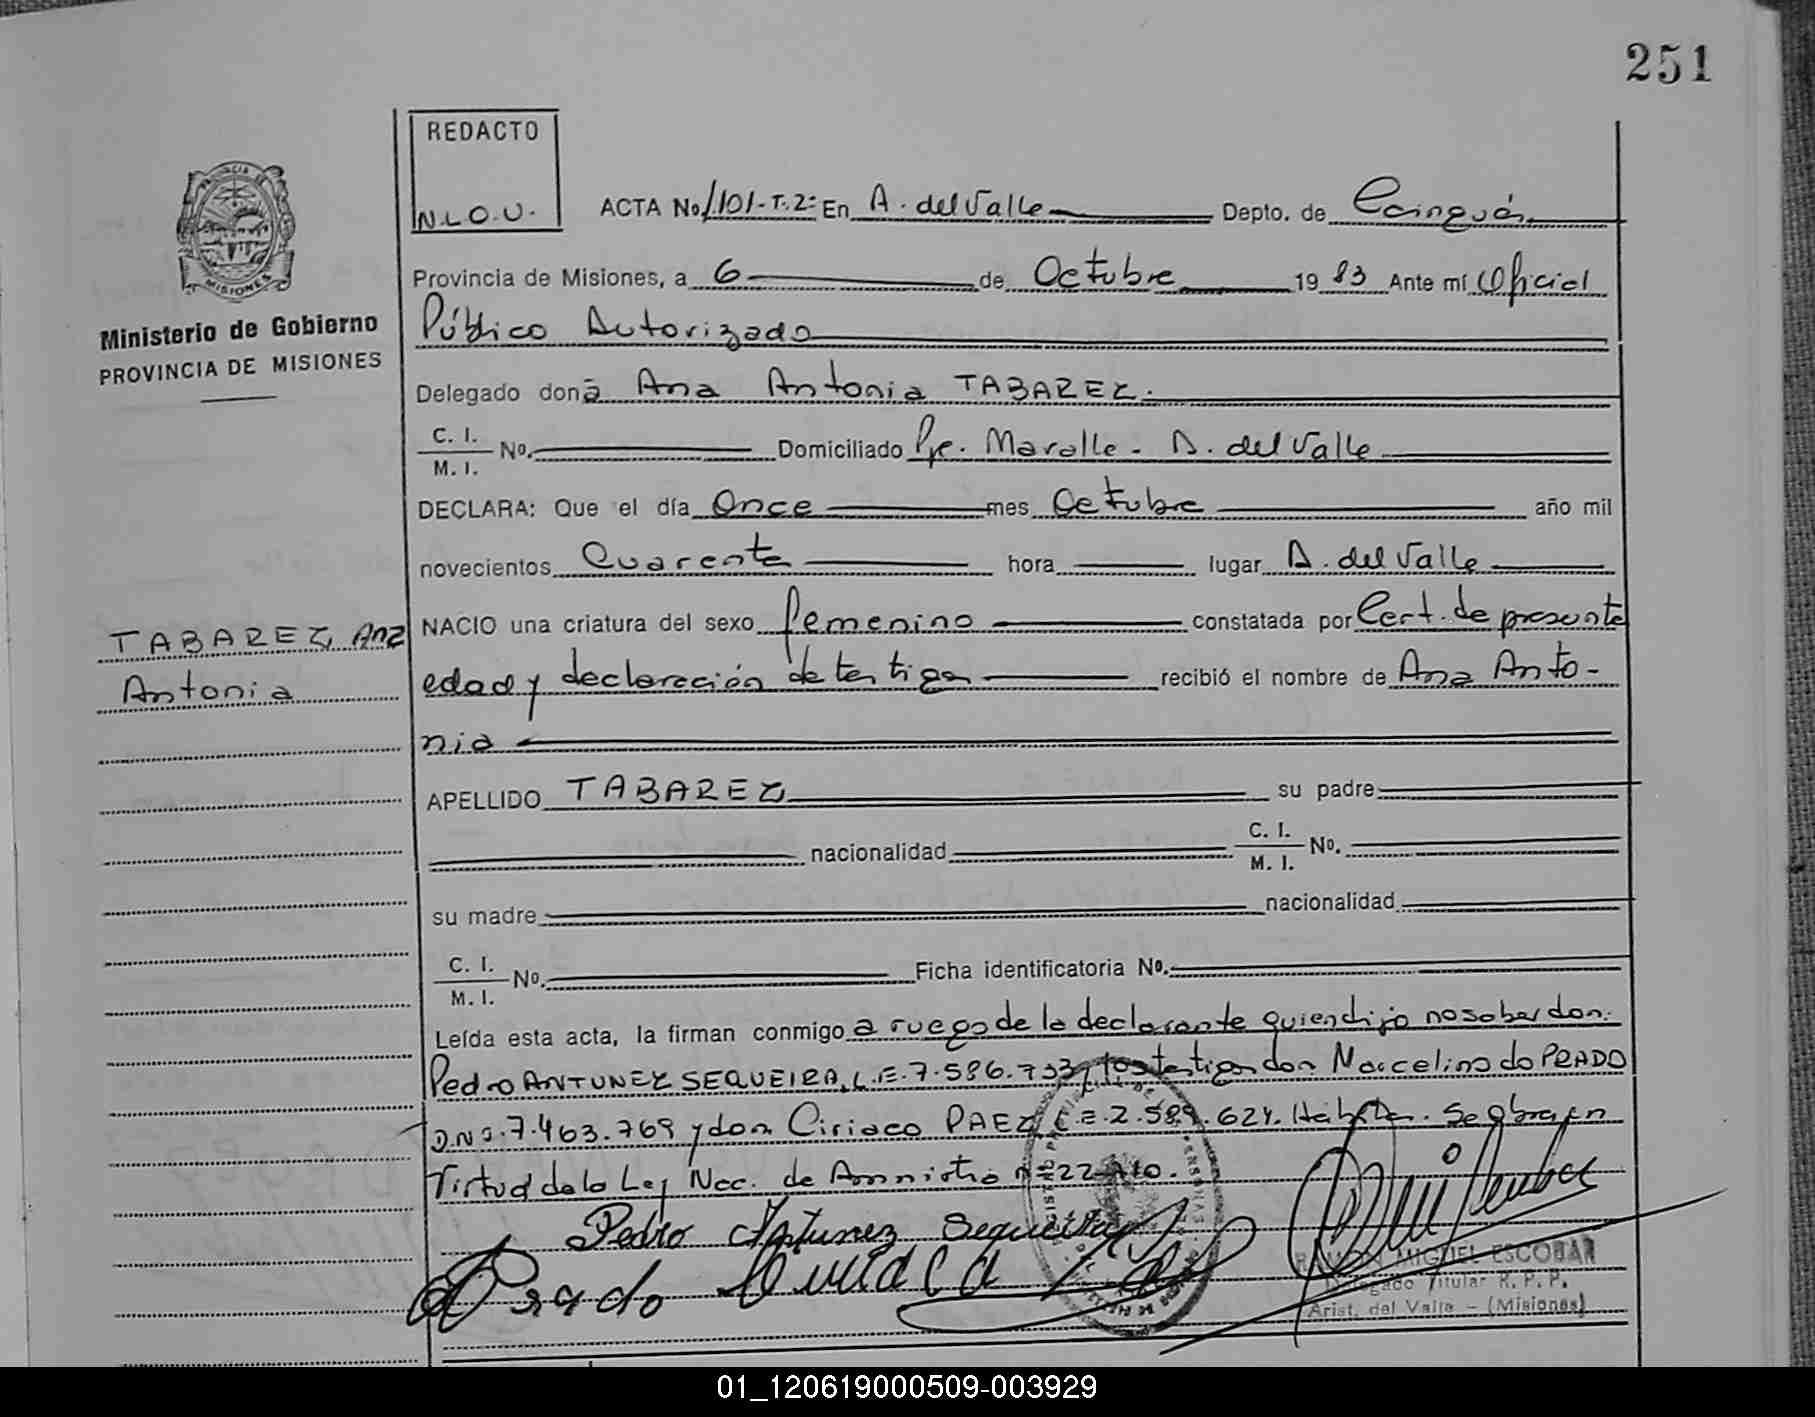 251
REDACTO
N.L.O.U.
ACTA No. 1101-T.2º En A. del Valle Depto. de Cainguás
Provincia de Misiones, a 6 de Octubre 19 83 Ante mí Oficial
Público Autorizado
Ministerio de Gobierno
PROVINCIA DE MISIONES
Delegado doña Ana Antonia TABAREZ.
C. I. / M. I. No. Domiciliado Pje. Marolle - A. del Valle
DECLARA: Que el día Once mes Octubre año mil
novecientos Cuarenta hora lugar A. del Valle
NACIO una criatura del sexo femenino constatada por Cert. de presunta
TABAREZ, Ana
Antonia
edad y declaración de testigos recibió el nombre de Ana Anto-
nia
APELLIDO TABAREZ su padre
nacionalidad C. I. / M. I. No.
su madre nacionalidad
C. I. / M. I. No. Ficha identificatoria No.
Leída esta acta, la firman conmigo a ruego de la declarante quien dijo no saber don.
Pedro ANTUNEZ SEQUEIRA, L.E. 7.586.733, los testigos don Marcelino do PRADO
D.N.I. 7.463.769 y don Ciriaco PAEZ L.E. 2.589.624. Se obra en
Virtud de la Ley Nac. de Amnistia nº 22.410.
Pedro Antunez Sequeira
Prado
RAMON MIGUEL ESCOBAR
Delegado Titular R. P. P.
Arist. del Valle - (Misiones)
01_120619000509-003929